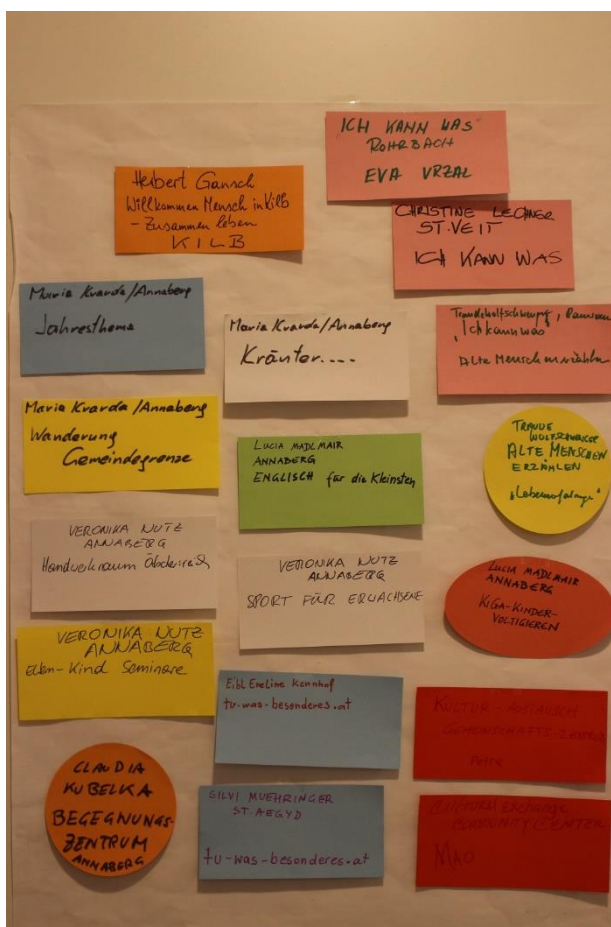 ICH KANN WAS
ROHRBACH
EVA VRZAL
Herbert Gansch
Willkommen Mensch in Kilb
- Zusammen leben
KILB
CHRISTINE LECHNER
ST. VEIT
ICH KANN WAS
Maria Kvarda/Annaberg
Jahresthema
Maria Kvarda/Annaberg
Kräuter....
"Ich kann was"
Alte Menschen erzählen
Maria Kvarda/Annaberg
Wanderung
Gemeindegrenze
LUCIA MADLMAIR
ANNABERG
ENGLISCH für die Kleinsten
TRAUDE
ALTE MENSCHEN
ERZÄHLEN
VERONIKA NUTZ
ANNABERG
Handwerksraum
VERONIKA NUTZ
ANNABERG
SPORT FÜR ERWACHSENE
LUCIA MADLMAIR
ANNABERG
KIGA-KINDER-
VOLTIGIEREN
VERONIKA NUTZ
ANNABERG
Eltern-Kind Seminare
Eibl Eveline Kernhof
tu-was-besonderes.at
KULTUR-AUSTAUSCH
GEMEINSCHAFTS-ZENTRUM
Petra
CLAUDIA
KUBELKA
BEGEGNUNGS-
ZENTRUM
ANNABERG
SILVI MUEHRINGER
ST. AEGYD
tu-was-besonderes.at
CULTURAL EXCHANGE
COMMUNITY CENTER
MAO